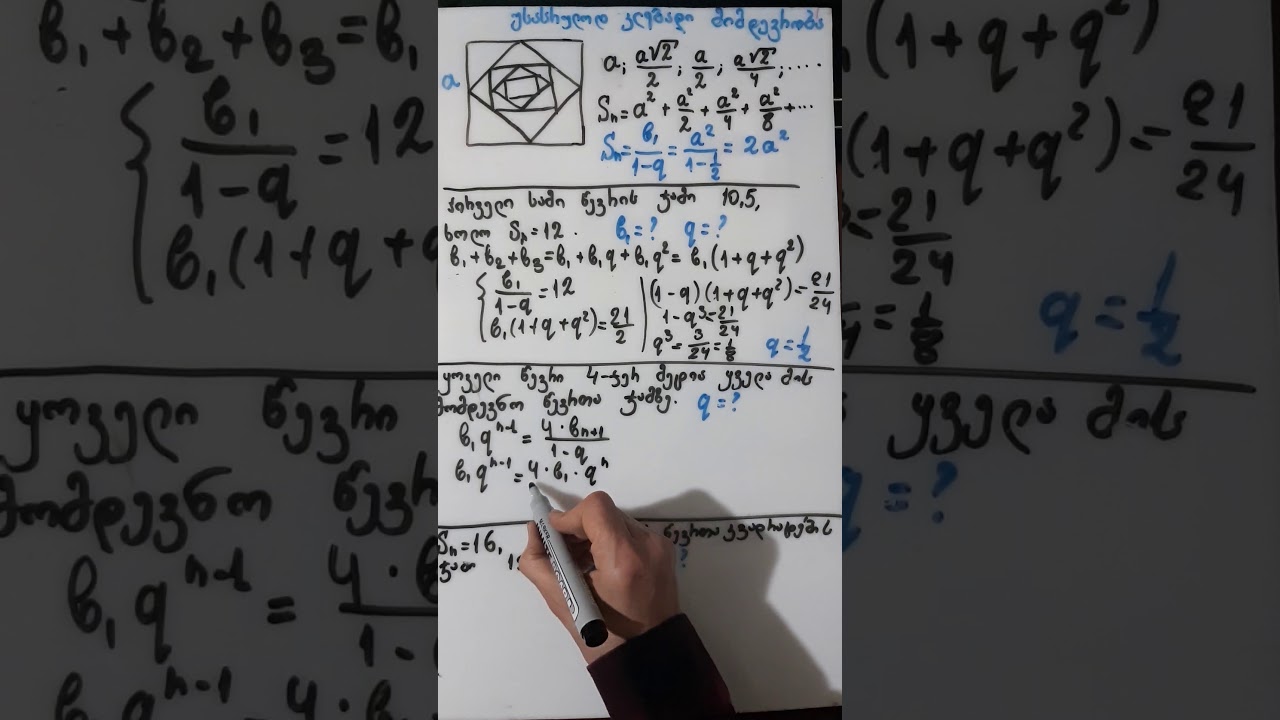 უსასრულოდ კლებადი მიმდევრობა
a
a; a√2/2; a/2; a√2/4; ....
Sₙ = a² + a²/2 + a²/4 + a²/8 + ...
Sₙ = b₁/(1-q) = a²/(1-1/2) = 2a²
პირველი სამი წევრის ჯამი 10,5,
ხოლო Sₙ = 12. b₁ = ? q = ?
b₁ + b₂ + b₃ = b₁ + b₁q + b₁q² = b₁(1 + q + q²)
{ b₁/(1-q) = 12
b₁(1 + q + q²) = 21/2
(1-q)(1 + q + q²) = 21/24
1 - q³ = 21/24
q³ = 3/24 = 1/8 q = 1/2
ყოველი წევრი 4-ჯერ მეტია ყველა მის
მომდევნო წევრთა ჯამზე. q = ?
b₁qⁿ⁻¹ = 4 · bₙ₊₁/(1-q)
b₁qⁿ⁻¹ = 4 · b₁ · qⁿ
Sₙ = 16, წევრთა კვადრატების
ჯამი ?